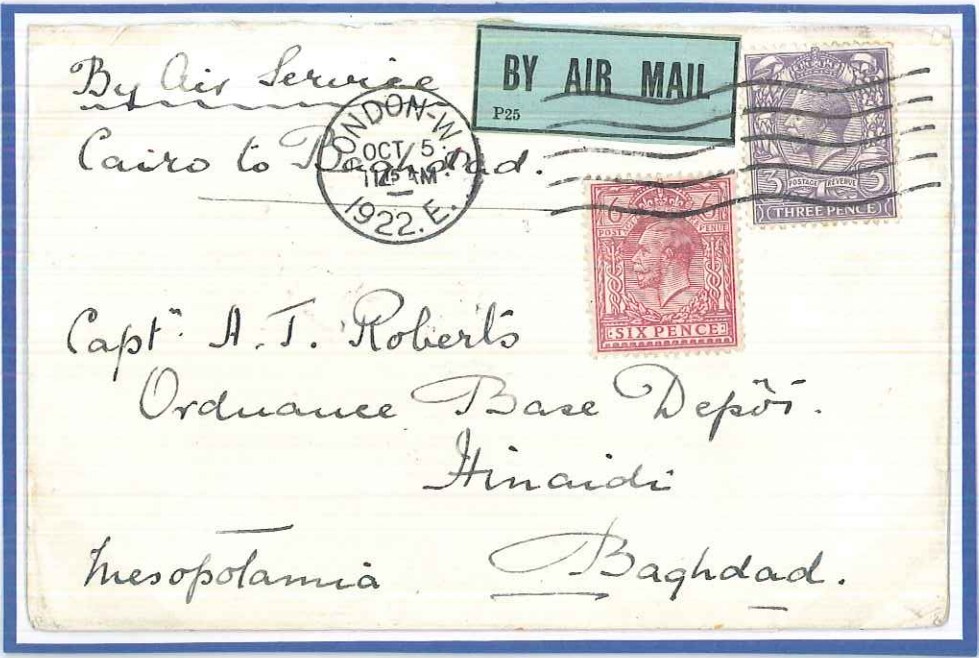 By Air Service
Cairo to Baghdad.
BY AIR MAIL
P25
LONDON-W.
OCT 5.
1922.E.
3 3
POSTAGE REVENUE
THREE PENCE
6 6
POSTAGE
SIX PENCE
Captn A. T. Roberts
Ordnance Base Depôt.
Hinaidi
Mesopotamia Baghdad.